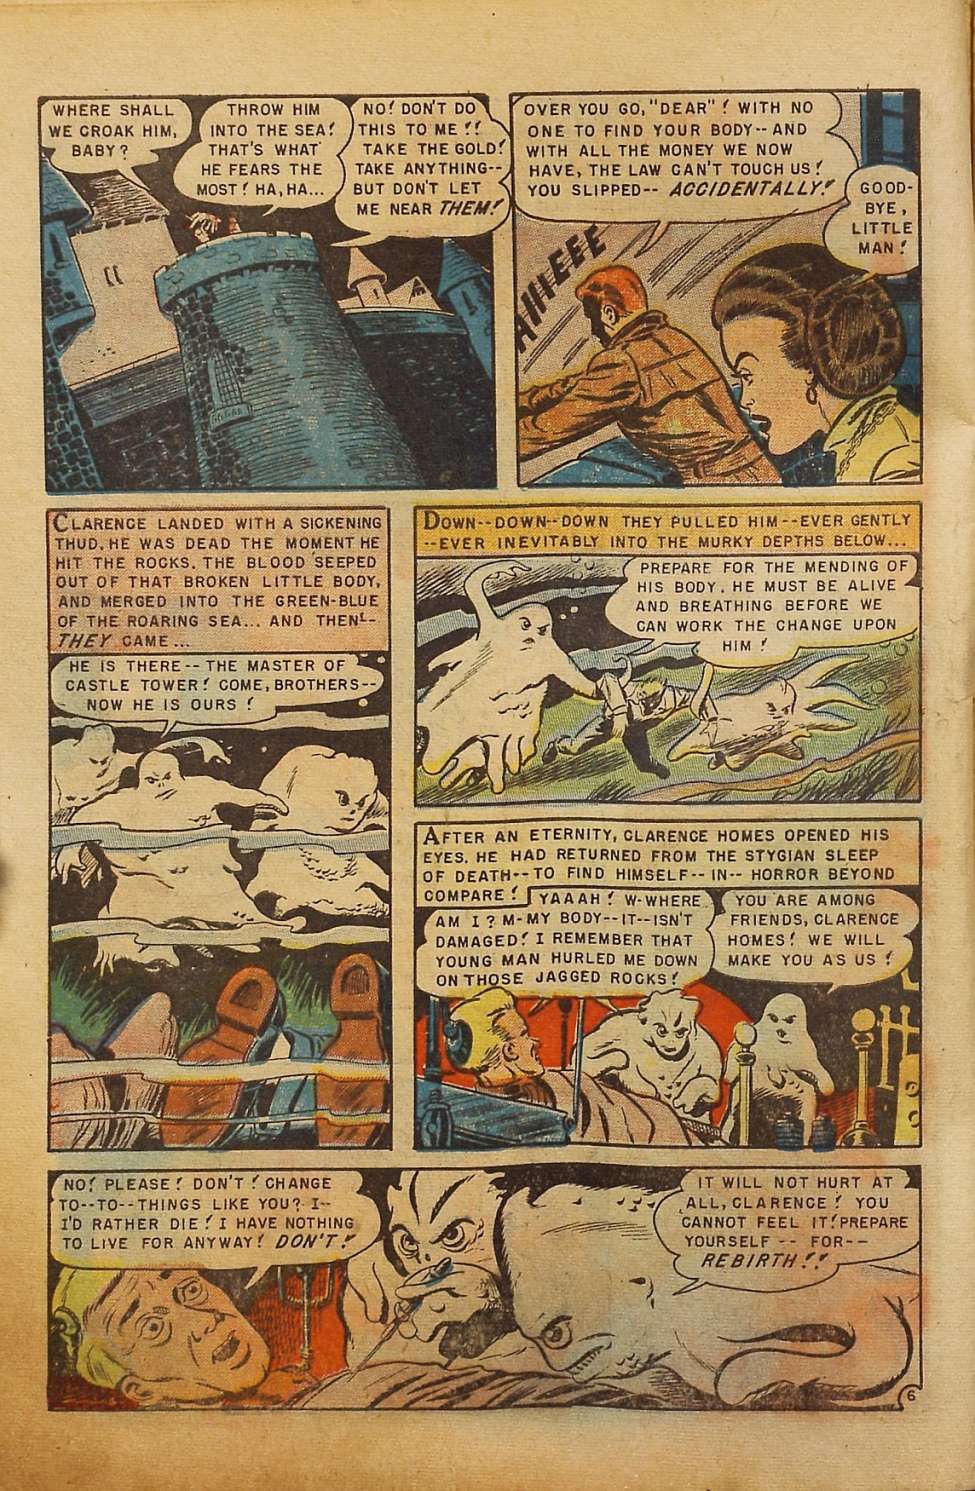 WHERE SHALL
WE CROAK HIM,
BABY?
THROW HIM
INTO THE SEA!
THAT'S WHAT
HE FEARS THE
MOST! HA, HA...
NO! DON'T DO
THIS TO ME!!
TAKE THE GOLD!
TAKE ANYTHING--
BUT DON'T LET
ME NEAR THEM!
OVER YOU GO, "DEAR"! WITH NO
ONE TO FIND YOUR BODY--AND
WITH ALL THE MONEY WE NOW
HAVE, THE LAW CAN'T TOUCH US!
YOU SLIPPED-- ACCIDENTALLY!
GOOD-
BYE,
LITTLE
MAN!
AIIIEEEE
CLARENCE LANDED WITH A SICKENING
THUD. HE WAS DEAD THE MOMENT HE
HIT THE ROCKS. THE BLOOD SEEPED
OUT OF THAT BROKEN LITTLE BODY,
AND MERGED INTO THE GREEN-BLUE
OF THE ROARING SEA... AND THEN--
THEY CAME...
HE IS THERE--THE MASTER OF
CASTLE TOWER! COME, BROTHERS--
NOW HE IS OURS!
DOWN--DOWN--DOWN THEY PULLED HIM--EVER GENTLY
--EVER INEVITABLY INTO THE MURKY DEPTHS BELOW...
PREPARE FOR THE MENDING OF
HIS BODY. HE MUST BE ALIVE
AND BREATHING BEFORE WE
CAN WORK THE CHANGE UPON
HIM!
AFTER AN ETERNITY, CLARENCE HOMES OPENED HIS
EYES. HE HAD RETURNED FROM THE STYGIAN SLEEP
OF DEATH--TO FIND HIMSELF--IN--HORROR BEYOND
COMPARE!
YAAAH! W-WHERE
AM I? M-MY BODY--IT--ISN'T
DAMAGED! I REMEMBER THAT
YOUNG MAN HURLED ME DOWN
ON THOSE JAGGED ROCKS!
YOU ARE AMONG
FRIENDS, CLARENCE
HOMES! WE WILL
MAKE YOU AS US!
NO! PLEASE! DON'T! CHANGE
TO--TO--THINGS LIKE YOU? I--
I'D RATHER DIE! I HAVE NOTHING
TO LIVE FOR ANYWAY! DON'T!
IT WILL NOT HURT AT
ALL, CLARENCE! YOU
CANNOT FEEL IT! PREPARE
YOURSELF -- FOR--
REBIRTH!!
6